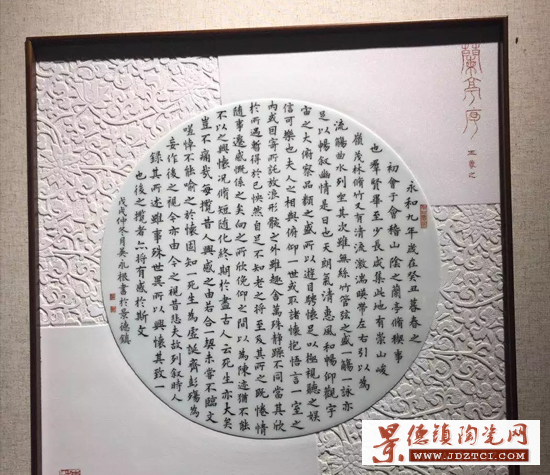 蘭亭序
王羲之
永和九年歲在癸丑暮春之
初會于會稽山陰之蘭亭脩稧事
也群賢畢至少長咸集此地有崇山峻
嶺茂林脩竹又有清流激湍暎帶左右引以為
流觴曲水列坐其次雖無絲竹管弦之盛一觴一詠亦
足以暢叙幽情是日也天朗氣清惠風和暢仰觀宇
宙之大俯察品類之盛所以遊目騁懷足以極視聽之娛
信可樂也夫人之相與俯仰一世或取諸懷抱悟言一室之
內或因寄所託放浪形骸之外雖趣舍萬殊靜躁不同當其欣
於所遇暫得於己怏然自足不知老之將至及其所之既惓情
隨事遷感慨係之矣向之所欣俛仰之間以為陳迹猶不能
不以之興懷況脩短隨化終期於盡古人云死生亦大矣
豈不痛哉每攬昔人興感之由若合一契未嘗不臨文
嗟悼不能喻之於懷固知一死生為虛誕齊彭殤為
妄作後之視今亦由今之視昔悲夫故列叙時人
錄其所述雖事殊世異所以興懷其致一
也後之攬者亦將有感於斯文
戊戌仲冬月吴永根書於景德鎮
景德镇陶瓷网
WWW.JDZTCI.COM